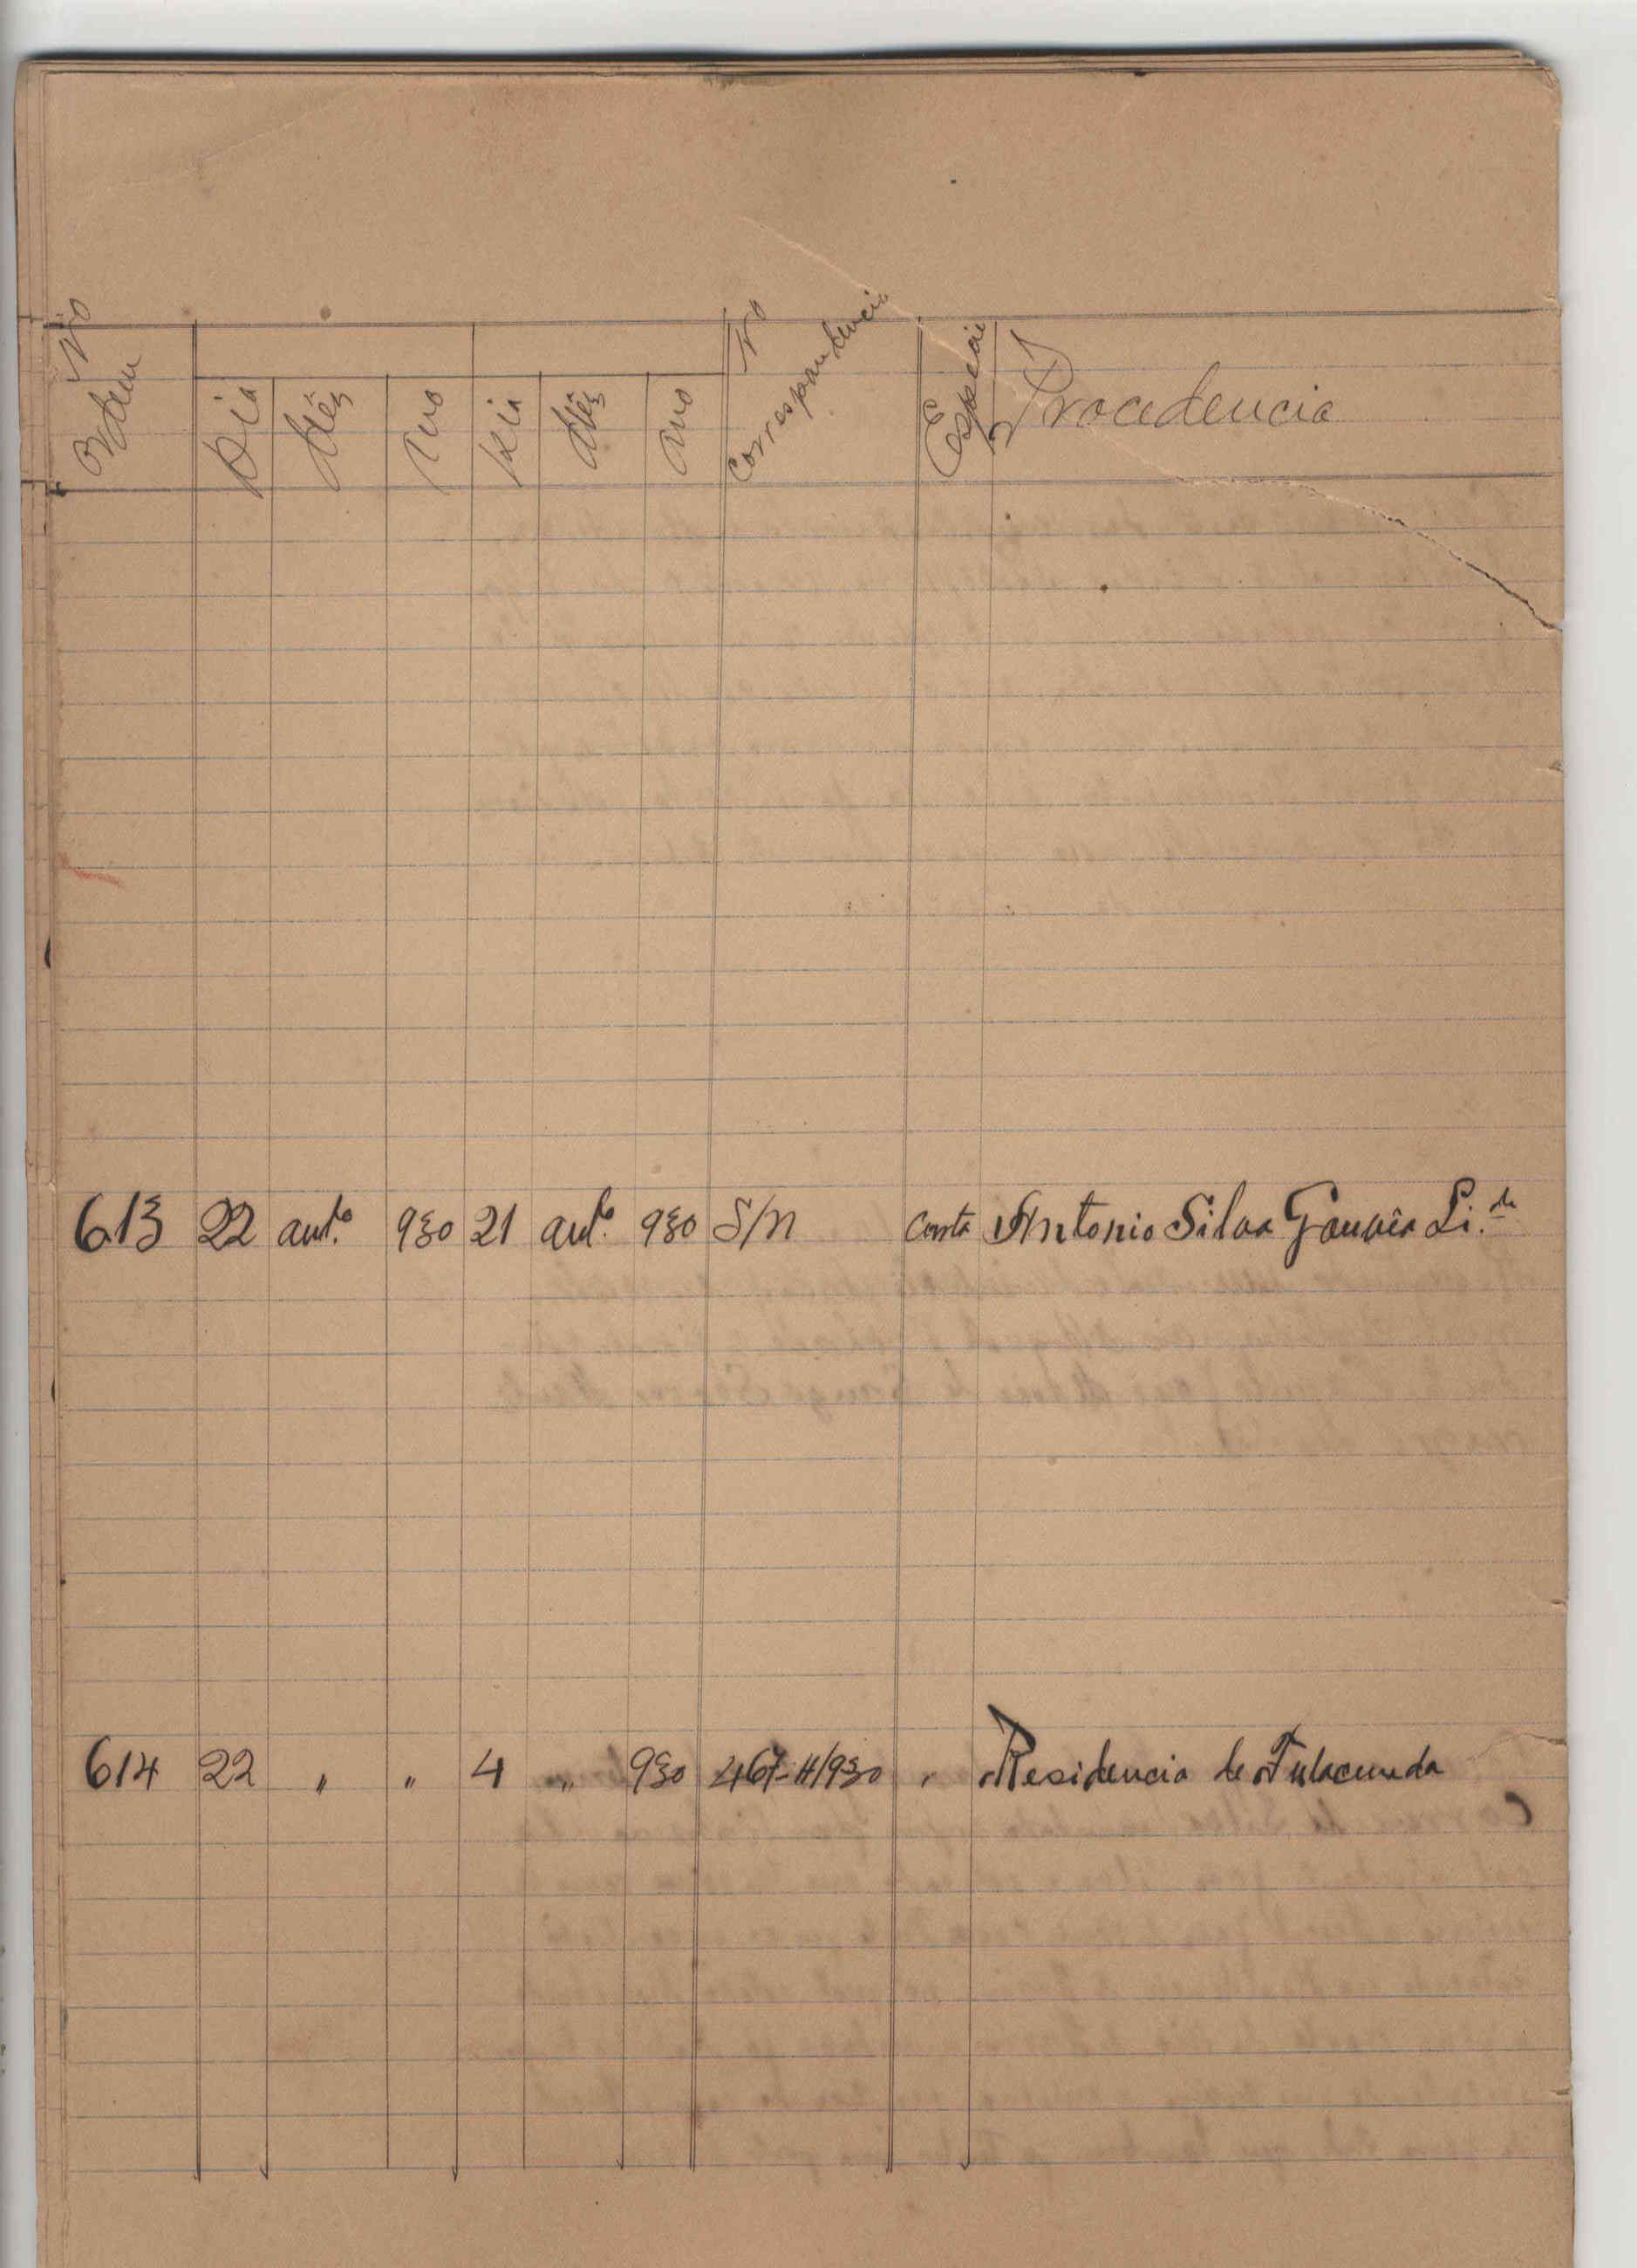 Nº Ordem Dia Mês Ano Dia Mês Ano Nº Correspondencia Especie Procedencia
613 22 aut.º 930 21 aut.º 930 S/n Carta Antonio Silva Gouvêa Li.da
614 22 " " 4 " 930 467-H/930 " Residencia de Fulacunda